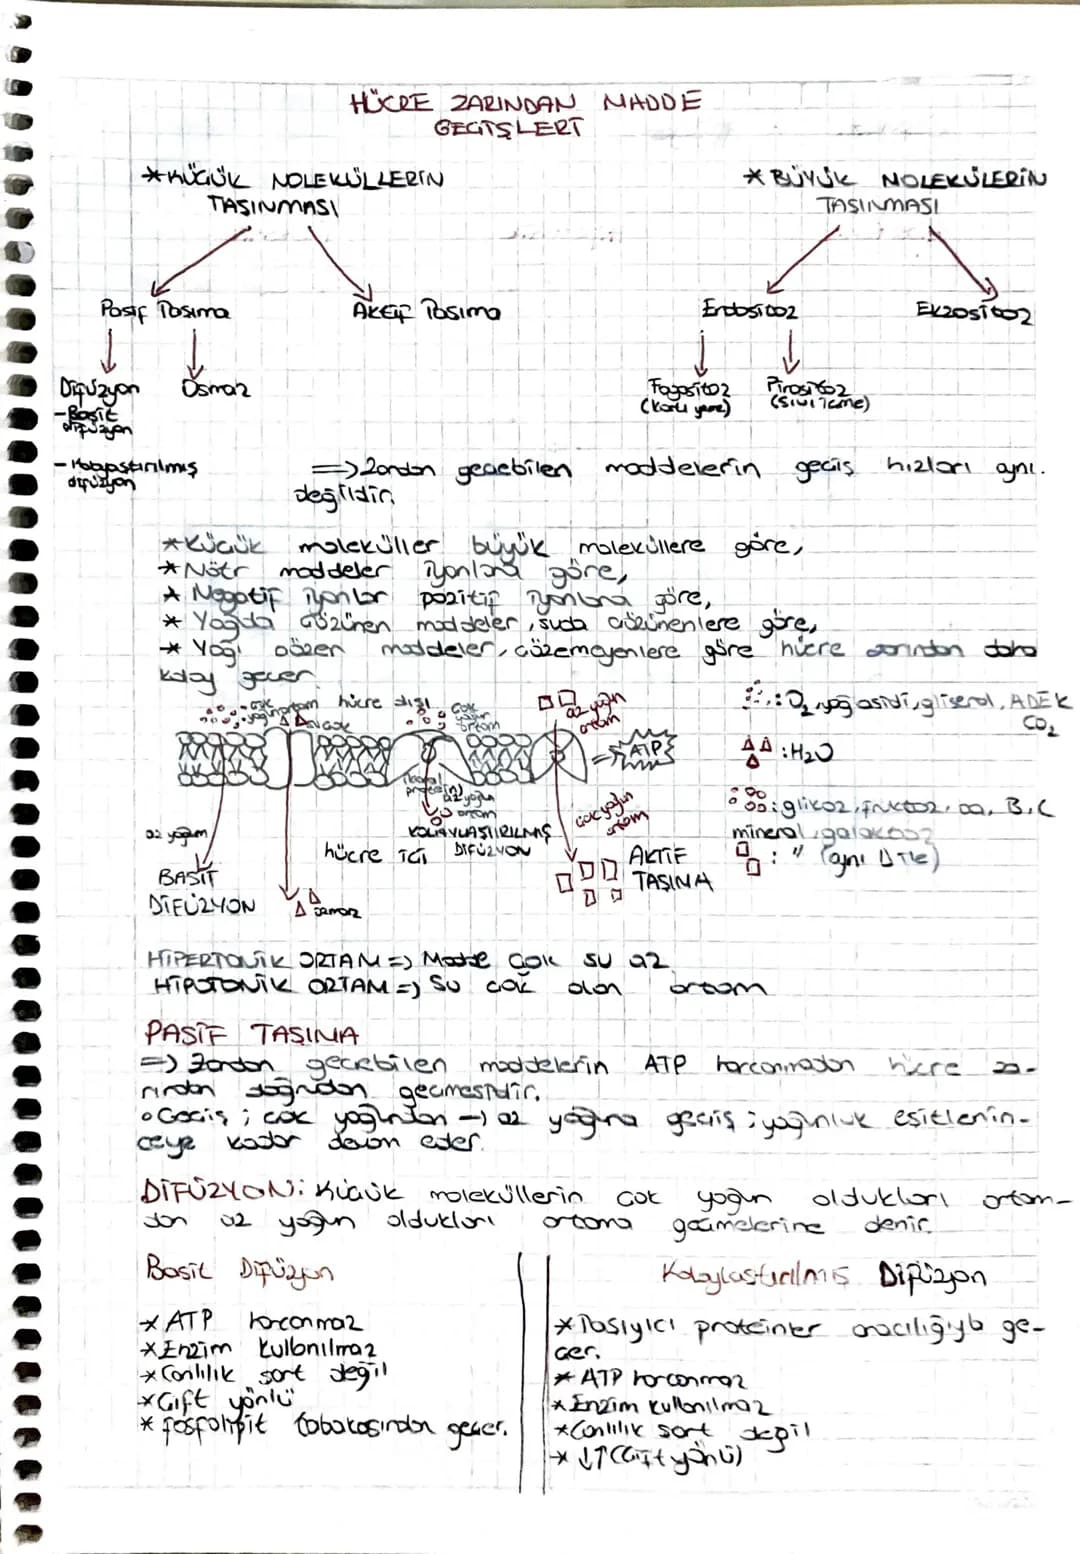 HÜCRE ZARINDAN MADDE
GEÇİŞLERİ
*KÜÇÜK MOLEKÜLLERİN
TAŞINMASI
*BÜYÜK MOLEKÜLERİN
TAŞINMASI
Pasif Taşıma
Aktif Taşıma
Endositoz
Ekzositoz
Difüzyon
Osmoz
-Basit
difüzyon
-Kolaylaştırılmış
difüzyon
Fagositoz
(katı yeme)
Pinositoz
(sıvı içme)
=> Zardan geçebilen maddelerin geçiş hızları aynı.
değildir.
*Küçük moleküller büyük moleküllere göre,
*Nötr maddeler iyonlara göre,
* Negatif iyonlar pozitif iyonlara göre,
* Yağda çözünen maddeler, suda çözünenlere göre,
* Yağı çözen maddeler, çözemeyenlere göre hücre zarından daha
kolay geçer.
çok
yoğun ortam
hücre dışı
çok
çok
yoğun
ortam
az yoğun
ortam
: O₂, yağ asidi, gliserol, ADEK
CO₂
ATP
: H₂O
az yoğun
ortam
çok yoğun
ortam
: glikoz, früktoz, aa, B, C
mineral, galaktoz
: " (aynı
az yoğun
KOLAYLAŞTIRILMIŞ
DİFÜZYON
hücre içi
BASİT
DİFÜZYON
osmoz
AKTİF
TAŞIMA
HİPERTONİK ORTAM => Madde çok su az
HİPOTONİK ORTAM => Su çok olan ortam
PASİF TAŞIMA
=> Zardan geçebilen maddelerin ATP harcanmadan hücre za-
rından doğrudan geçmesidir.
• Geçiş; çok yoğundan → az yoğuna geçiş; yoğunluk eşitlenin-
ceye kadar devam eder.
DİFÜZYON: Küçük moleküllerin çok yoğun oldukları ortam-
dan az yoğun oldukları ortama geçmelerine denir.
Basit Difüzyon
* ATP harcanmaz
*Enzim kullanılmaz
*Canlılık şart değil
*Çift yönlü
* fosfolipit tabakasından geçer.
Kolaylaştırılmış Difüzyon
*Taşıyıcı proteinler aracılığıyla ge-
çer.
* ATP harcanmaz
*Enzim kullanılmaz
*Canlılık şart değil
* ↓↑ (Çift yönlü)